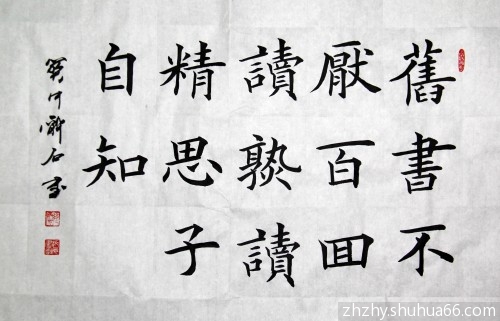 舊書不
厭百囬
讀熟讀
精思子
自知
zhzhy.shuhua66.com